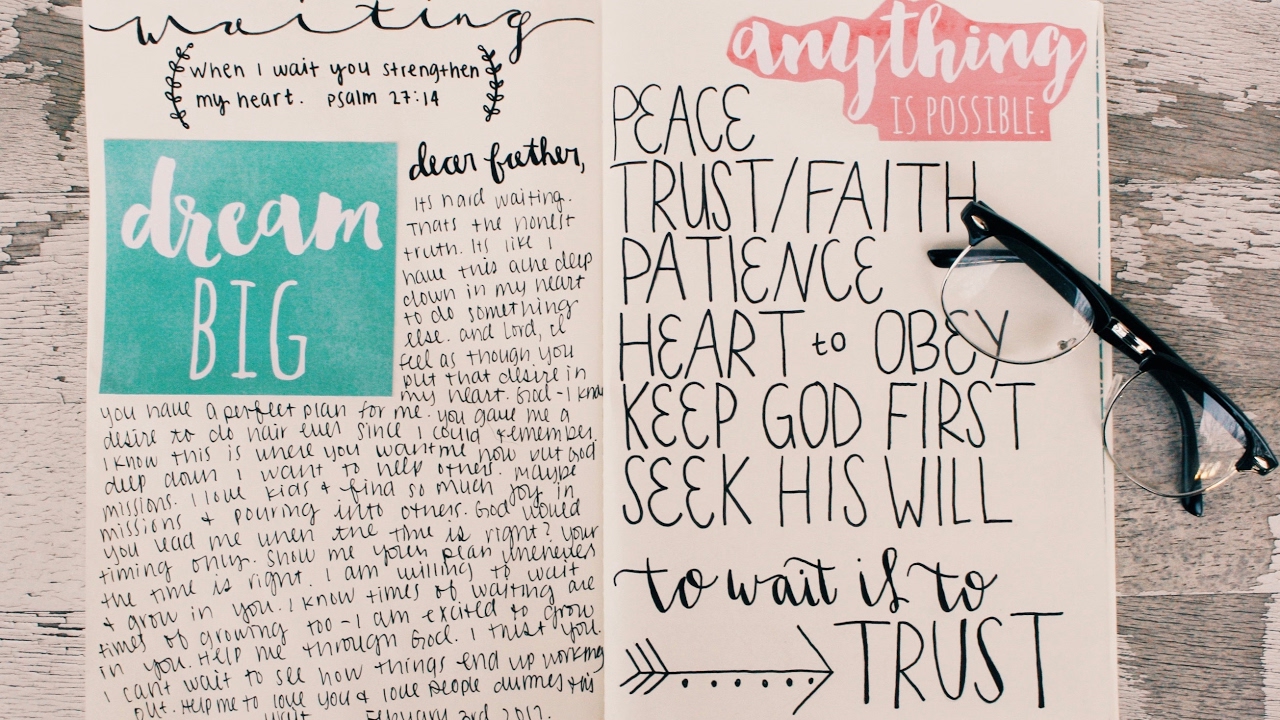 waiting
when I wait you strengthen
my heart. psalm 27:14
dream
BIG
dear father,
Its hard waiting.
Thats the honest
truth. Its like I
have this ache deep
down in my heart
to do something
else. and Lord, I
feel as though you
put that desire in
my heart. God - I know
you have a perfect plan for me. you gave me a
desire to do hair ever since I could remember.
I know this is where you want me now but God
deep down I want to help others. Maybe
missions. I love kids & find so much joy in
missions & pouring into others. God would
you lead me when the time is right? your
timing only. Show me your plan whenever
the time is right. I am willing to wait
& grow in you. I know times of waiting are
times of growing too - I am excited to grow
in you. Help me through God. I trust you.
I cant wait to see how things end up working
out. Help me to love you & love people during this
wait. February 3rd 2017.
anything
IS POSSIBLE.
PEACE
TRUST/FAITH
PATIENCE
HEART to OBEY
KEEP GOD FIRST
SEEK HIS WILL
to wait is to
TRUST